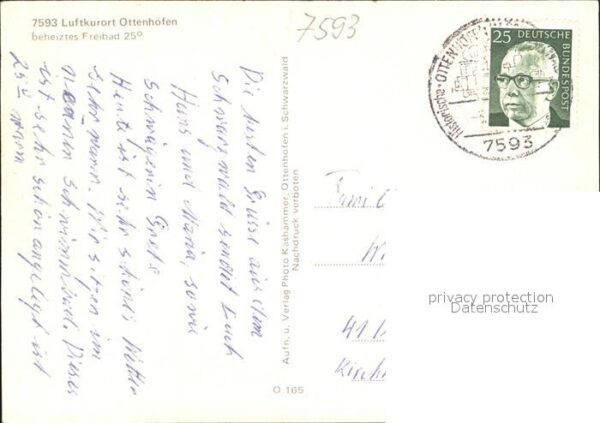 7593 Luftkurort Ottenhöfen
beheiztes Freibad 25°
7593
25 DEUTSCHE
BUNDESPOST
OTTENHÖFEN
7593
Die besten Grüsse aus dem
Schwarzwald sendet Euch
Hans und Maria, sowie
Schwägerin
Heute ist sehr schönes Wetter
sehr warm. Wir sitzen im
Schwimmbad. Dieses
ist sehr schön angelegt ist
25° warm
Aufn. u. Verlag Photo Kashammer, Ottenhöfen i. Schwarzwald
Nachdruck verboten
O 165
Fami
41
Kirch
privacy protection
Datenschutz